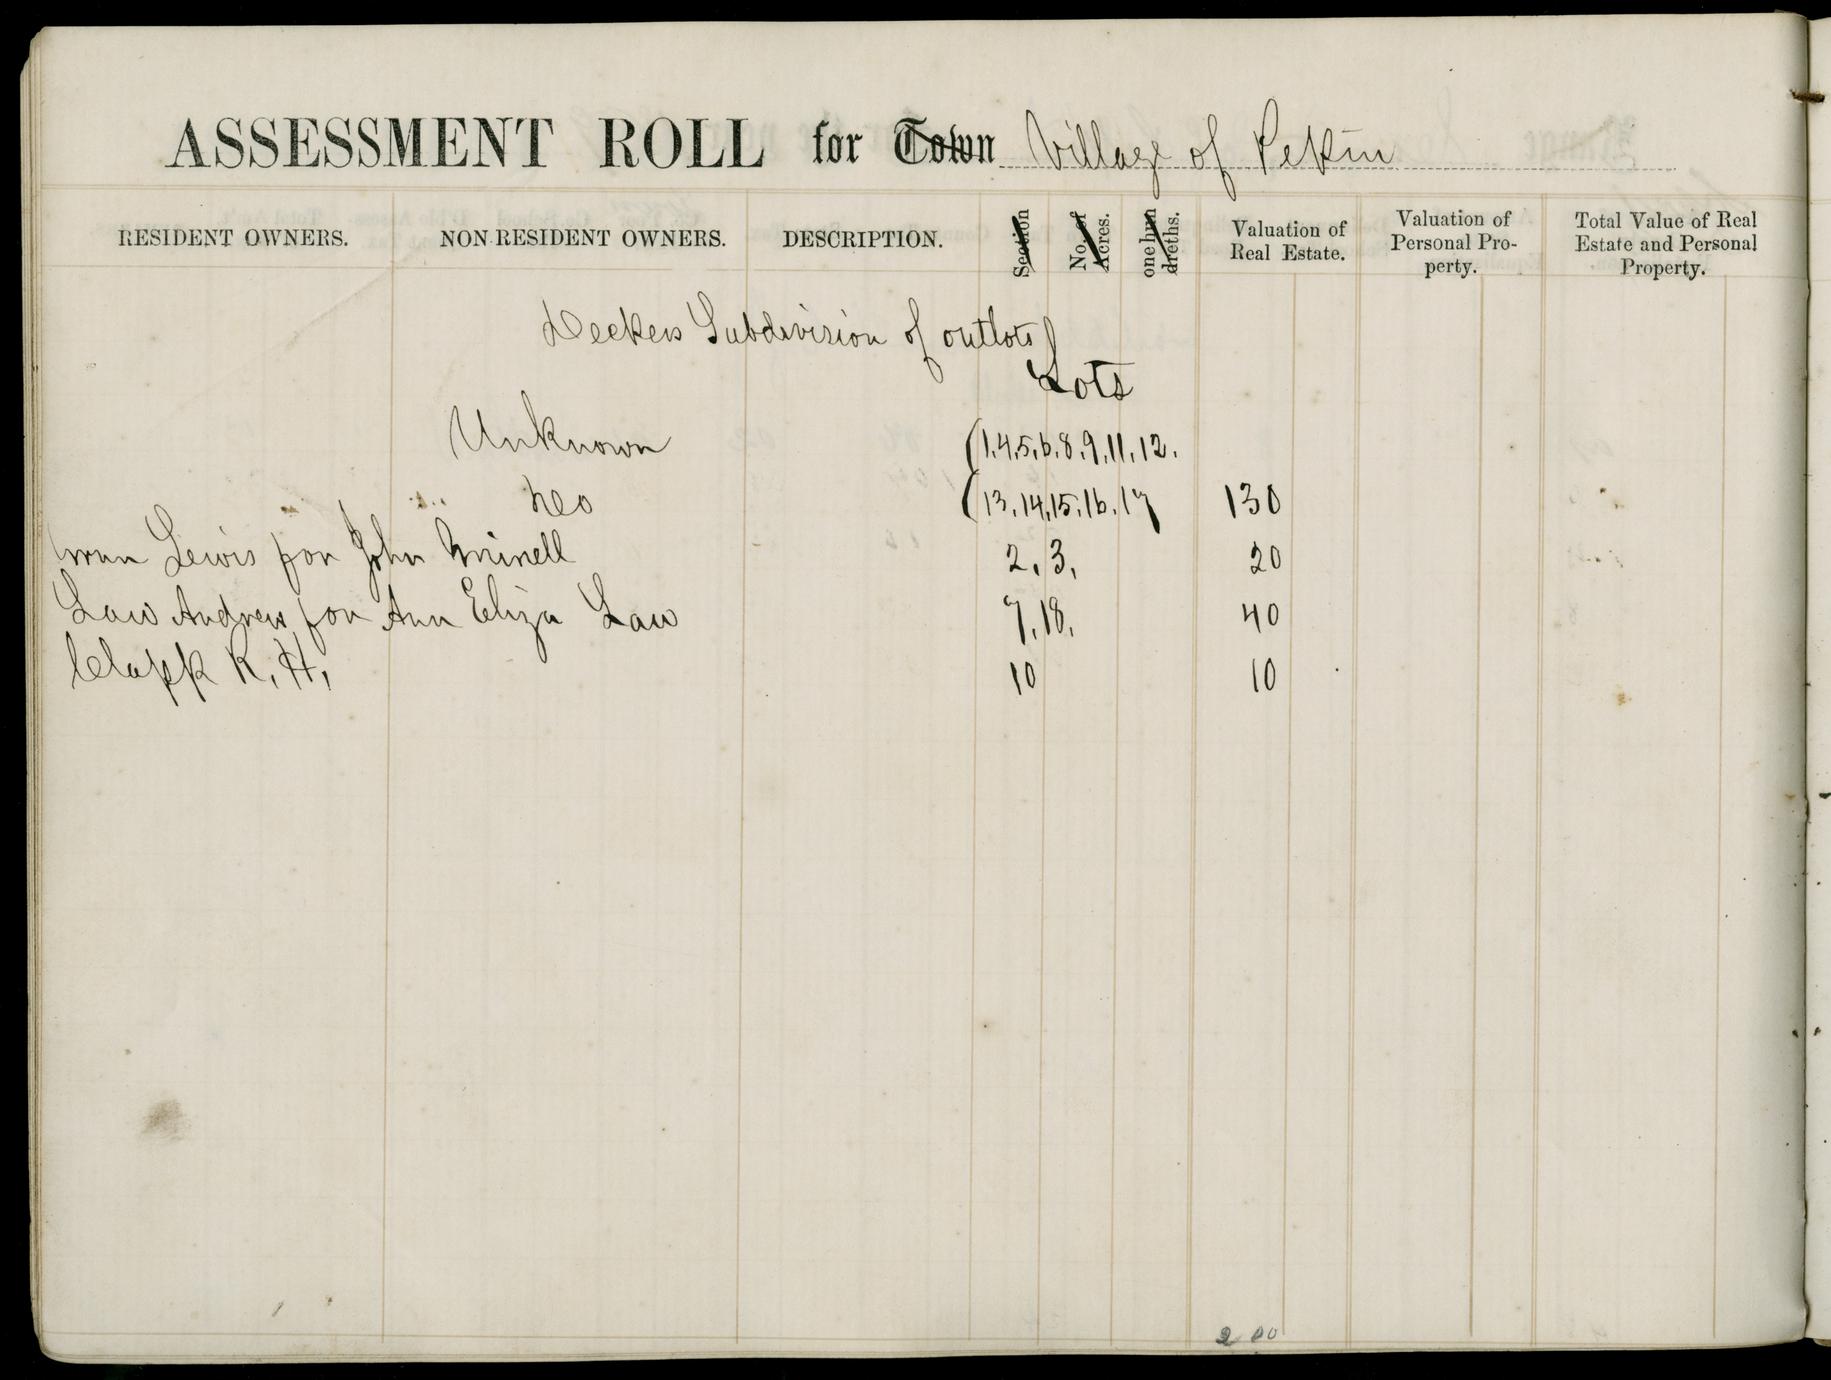 ASSESSMENT ROLL for Town Village of Pekin
RESIDENT OWNERS. NON-RESIDENT OWNERS. DESCRIPTION. Section No. of Acres. one hundreths. Valuation of Real Estate. Valuation of Personal Property. Total Value of Real Estate and Personal Property.
Deckers Subdivision of outlots
Lots
Unknown (1,4,5,6,8,9,11,12.
Do (13,14,15,16,17 130
Lewis for John 2,3, 20
Law Andrew for Ann Eliza Law 7,18, 40
Clapp R. H, 10 10
200